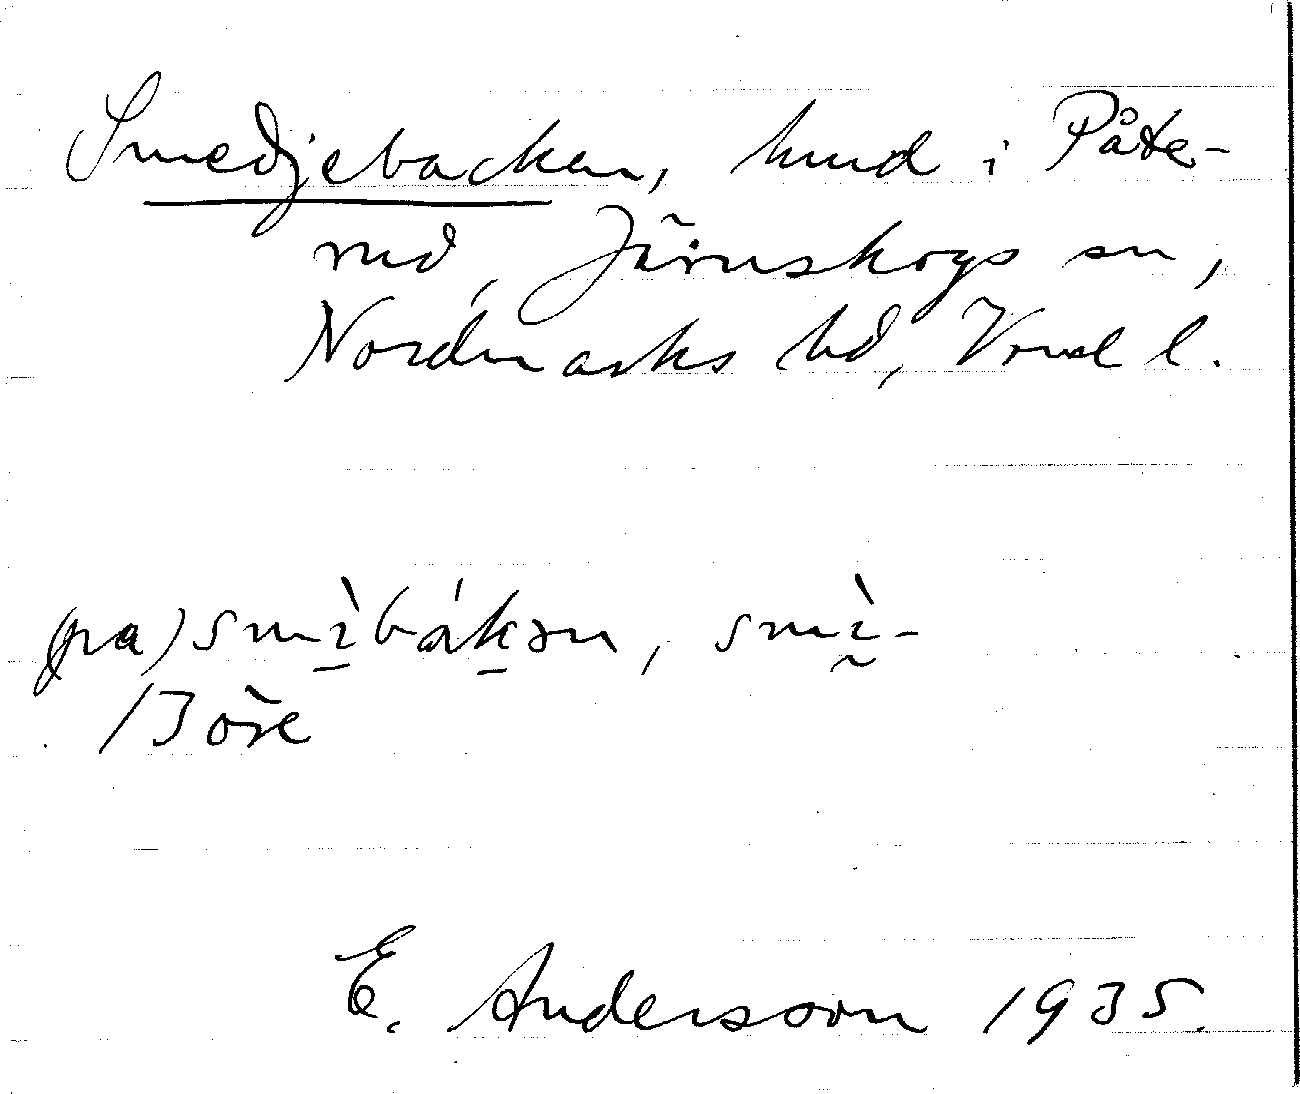 Smedjebacken, hmd i Påte-
rud, Järnskogs sn,
Nordmarks hd, Vrml l.
(pa) smı̱̀bák̠ən, smı̰̀-
E. Andersson 1935.